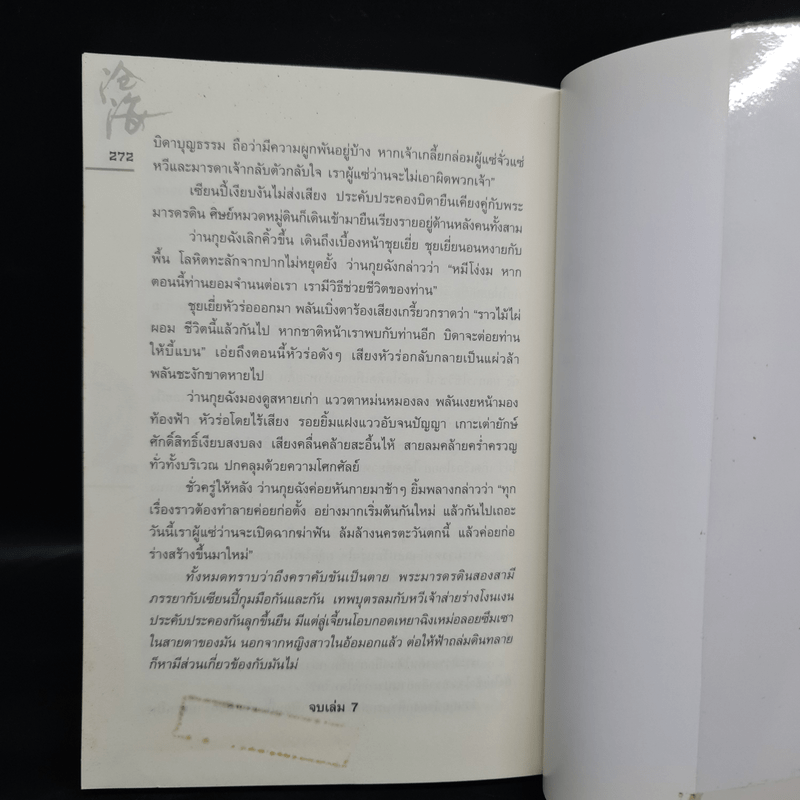 沧海
272
บิดาบุญธรรม ถือว่ามีความผูกพันอยู่บ้าง หากเจ้าเกลี้ยกล่อมผู้แซ่จั่วแซ่
หวีและมารดาเจ้ากลับตัวกลับใจ เราผู้แซ่ว่านจะไม่เอาผิดพวกเจ้า”
เซียนปี้เงียบงันไม่ส่งเสียง ประคับประคองบิดายืนเคียงคู่กับพระ
มารดรดิน ศิษย์หมวดหมู่ดินก็เดินเข้ามายืนเรียงรายอยู่ด้านหลังคนทั้งสาม
ว่านกุยฉังเลิกคิ้วขึ้น เดินถึงเบื้องหน้าชุยเยี่ย ชุยเยี่ยนอนหงายกับ
พื้น โลหิตทะลักจากปากไม่หยุดยั้ง ว่านกุยฉังกล่าวว่า “หมีโง่งม หาก
ตอนนี้ท่านยอมจำนนต่อเรา เรามีวิธีช่วยชีวิตของท่าน”
ชุยเยี่ยหัวร่อออกมา พลันเบิ่งตาร้องเสียงเกรี้ยวกราดว่า “ราวไม้ไผ่
ผอม ชีวิตนี้แล้วกันไป หากชาติหน้าเราพบกับท่านอีก บิดาจะต่อยท่าน
ให้บี้แบน” เอ่ยถึงตอนนี้หัวร่อดังๆ เสียงหัวร่อกลับกลายเป็นแผ่วล้า
พลันชะงักขาดหายไป
ว่านกุยฉังมองดูสหายเก่า แววตาหม่นหมองลง พลันเงยหน้ามอง
ท้องฟ้า หัวร่อโดยไร้เสียง รอยยิ้มแฝงแววอับจนปัญญา เกาะเต่ายักษ์
ศักดิ์สิทธิ์เงียบสงบลง เสียงคลื่นคล้ายสะอื้นไห้ สายลมคล้ายคร่ำครวญ
ทั่วทั้งบริเวณ ปกคลุมด้วยความโศกศัลย์
ชั่วครู่ให้หลัง ว่านกุยฉังค่อยหันกายมาช้าๆ ยิ้มพลางกล่าวว่า “ทุก
เรื่องราวต้องทำลายค่อยก่อตั้ง อย่างมากเริ่มต้นกันใหม่ แล้วกันไปเถอะ
วันนี้เราผู้แซ่ว่านจะเปิดฉากฆ่าฟัน ล้มล้างนครตะวันตกนี้ แล้วค่อยก่อ
ร่างสร้างขึ้นมาใหม่”
ทั้งหมดทราบว่าถึงคราคับขันเป็นตาย พระมารดรดินสองสามี
ภรรยากับเซียนปี้กุมมือกันและกัน เทพบุตรลมกับหวีเจ้าส่ายร่างโงนเงน
ประคับประคองกันลุกขึ้นยืน มีแต่ลู่เจี้ยนโอบกอดเหยาฉิงเหม่อลอยซึมเซา
ในสายตาของมัน นอกจากหญิงสาวในอ้อมอกแล้ว ต่อให้ฟ้าถล่มดินทลาย
ก็หามีส่วนเกี่ยวข้องกับมันไม่
จบเล่ม 7